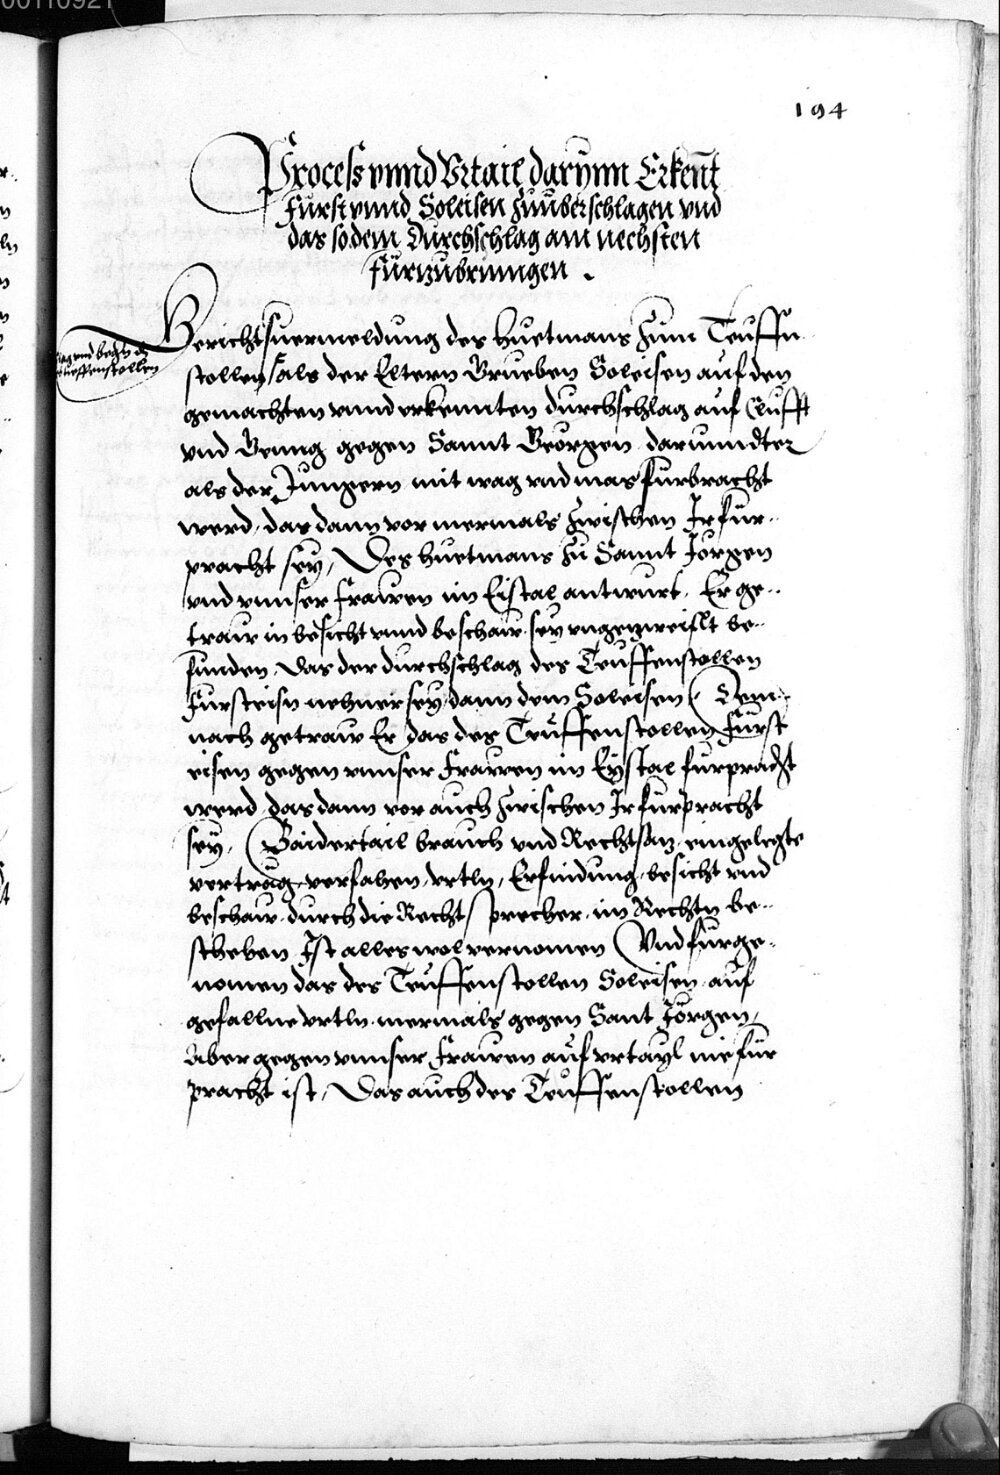 194
Process vnnd Vrtail darynn Erkennt
Fürst vnnd Soleisen Zuüberschlagen vnd
das so dem Durchschlag am nechsten
fürzubrinngen .
Clag vnd beger des
Teuffenstollen
Gerichtsvermeldung des Huetmans Zum Teuffn
stollen, als der Eltern Grueben Soleisen auf den
gemachten vnnd erkennten durchschlag auf Clufft
vnd Genng gegen Sannt Georgen darunndter
als der Jungern mit wag vnd mas furbracht
werd, das dann vor mermals Zwischen Ir für-
pracht sey, Des Huetmans Zu Sannt Jorgen
vnd vnnser Frawen im Eistal antwurt. Er ge-
traw in besicht vnnd beschaw sey vngezweiflt be-
funden, Das der durchschlag des Teuffenstollen
Fursteisn nehner sey, dann dem Soleisen, Dem-
nach getraw Er das des Teuffenstollen Fürst
eisen gegen vnnser Frawen im Eystal fürpracht
werd, das dann vor auch Zwischen Ir fürpracht
sey, Baidertail brauch vnd Rechtsaz, eingelegte
vertrag, verfahen, vrtln, Erfindung, besicht vnd
beschaw, durch die Recht sprecher im Rechtn be-
schehen Ist alles wol vernomen, Vnd fürge-
nomen das des Teuffenstollen Soleisen auf
gefallne vrtln mermals gegen Sant Jörgen,
Aber gegen vnnser Frawen auf vrtayl nie für
pracht ist, Das auch des Teuffenstollen